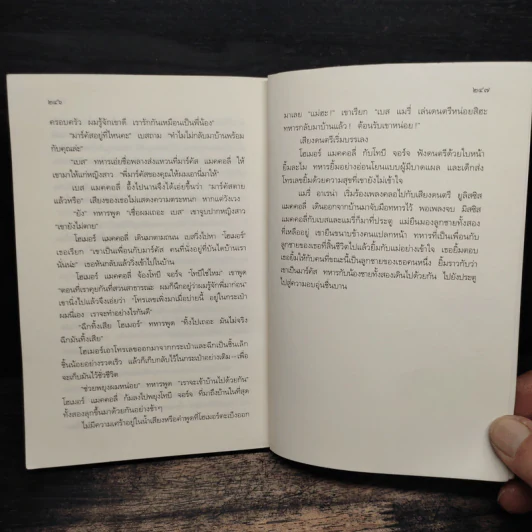 ๒๔๖
ครอบครัว ผมรู้จักเขาดี เรารักกันเหมือนเป็นพี่น้อง"
"มาร์คัสอยู่ที่ไหนคะ" เบสถาม "ทำไมไม่กลับมาบ้านพร้อม
กับคุณล่ะ"
"เบส" ทหารเอ่ยชื่อเพลางส่งแหวนที่มาร์คัส แมคคอลี่ ให้
เขามาให้แก่หญิงสาว "พี่มาร์คัสของคุณให้ผมเอานี่มาให้"
เบส แมคคอลี่ อึ้งไปนานจึงได้เอ่ยขึ้นว่า "มาร์คัสตาย
แล้วหรือ" เสียงของเธอไม่แสดงความตระหนก หากแต่วังเวง
"ยัง" ทหารพูด "เชื่อผมเถอะ เบส" เขาจูบปากหญิงสาว
"เขายังไม่ตาย"
โฮเมอร์ แมคคอลี่ เดินมาตามถนน เบสวิ่งไปหา "โฮเมอร์"
เธอเรียก "เขามาจากมาร์คัส คนที่นั่งอยู่ที่บันไดบ้านเรา
นั่นน่ะ" เธอหันกลับแล้ววิ่งเข้าไปในบ้าน
โฮเมอร์ แมคคอลี่ จ้องโทบี จอร์จ "โทบีใช่ไหม" เขาพูด
"ตอนที่เราคุยกันที่สวนสาธารณะ ผมก็นึกอยู่ว่าผมรู้จักพี่มาก่อน"
เขานิ่งไปแล้วจึงเอ่ยว่า "โทรเลขเพิ่งมาเมื่อบ่ายนี้ อยู่ในกระเป๋า
ผมนี่เอง เราจะทำอย่างไรกันดี"
"ฉีกทิ้งเสีย โฮเมอร์" ทหารพูด "ทิ้งไปเถอะ มันไม่จริง
ฉีกมันทิ้งเสีย"
โฮเมอร์เอาโทรเลขออกมาจากกระเป๋าและฉีกเป็นชิ้นเล็ก
ชิ้นน้อยอย่างรวดเร็ว แล้วก็เก็บกลับไว้ในกระเป๋าอย่างเดิม—เพื่อ
จะเก็บมันไว้ชั่วชีวิต
"ช่วยพยุงผมหน่อย" ทหารพูด "เราจะเข้าบ้านไปด้วยกัน"
โฮเมอร์ แมคคอลี่ ก้มลงไปพยุงโทบี จอร์จ ที่มาถึงบ้านในที่สุด
ทั้งสองลุกขึ้นมาด้วยกันอย่างช้าๆ
ไม่มีความเศร้าอยู่ในน้ำเสียงหรือคำพูดที่โฮเมอร์ตะเบ็งออก
๒๔๗
มาเลย "แม่ฮะ!" เขาเรียก "เบส แมรี่ เล่นดนตรีหน่อยสิฮะ
ทหารกลับมาบ้านแล้ว! ต้อนรับเขาหน่อย!"
เสียงดนตรีเริ่มบรรเลง
โฮเมอร์ แมคคอลี่ กับโทบี จอร์จ ฟังดนตรีด้วยใบหน้า
ยิ้มละไม ทหารยิ้มอย่างอ่อนโยนแบบผู้มีบาดแผล และเด็กส่ง
โทรเลขยิ้มด้วยความสุขที่เขายังไม่เข้าใจ
แมรี่ อาเรน่า เริ่มร้องเพลงคลอไปกับเสียงดนตรี ยูลิสซิส
แมคคอลี่ เดินออกจากบ้านมาจับมือทหารไว้ พอเพลงจบ มิสซิส
แมคคอลี่กับเบสและแมรี่ก็มาที่ประตู แม่ยืนมองลูกชายทั้งสอง
ที่เหลืออยู่ เขายืนขนาบข้างคนแปลกหน้า ทหารที่เป็นเพื่อนกับ
ลูกชายของเธอที่สิ้นชีวิตไปแล้วยิ้มกับแม่อย่างเข้าใจ เธอยิ้มตอบ
เธอยิ้มให้กับคนที่ขณะนี้เป็นลูกชายของเธอคนหนึ่ง ยิ้มราวกับว่า
เขาเป็นมาร์คัส ทหารกับน้องชายทั้งสองเดินไปด้วยกัน ไปยังประตู
ไปสู่ความอบอุ่นชื่นบาน